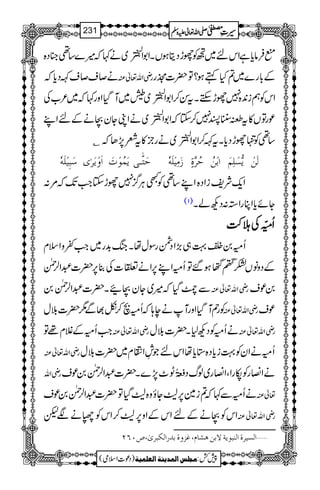 سیرتِ مصطفیٰ صلی اللہ تعالیٰ علیہ وسلم
231
منع فرمایا ہے اس لئے میں تجھ کو چھوڑ دیتا ہوں۔ ابوالبختری نے کہا کہ میرے ساتھی جنادہ
بن کے بارے میں تم کیا کہتے ہو؟ تو حضرت مجذر رضی اللہ تعالیٰ عنہ نے صاف صاف کہہ دیا کہ
اس کو ہم زندہ نہیں چھوڑ سکتے۔ یہ سن کر ابوالبختری طیش میں آ گیا اور کہا کہ میں عرب کی
عورتوں کا یہ طعنہ سننا پسند نہیں کر سکتا کہ ابوالبختری نے اپنی جان بچانے کے لئے اپنے
ساتھی کو تنہا چھوڑ دیا۔ یہ کہہ کر ابوالبختری نے رجز کا یہ شعر پڑھا کہ
لَنْ يُّسْلِمَ ابْنُ حُرَّةٍ زَمِيْلَهٗ حَتّٰى يَمُوْتَ اَوْيَرٰى سَبِيْلَهٗ
ایک شریف زادہ اپنے ساتھی کو کبھی ہرگز نہیں چھوڑ سکتا جب تک کہ مر نہ
جائے یا اپنا راستہ نہ دیکھ لے۔ (1)
اُمیہ کی ہلاکت
امیہ بن خلف بہت ہی بڑا دشمن رسول تھا۔ جنگ بدر میں جب کفر و اسلام
کے دونوں لشکر گتھم گتھا ہو گئے تو امیہ اپنے پرانے تعلقات کی بنا پر حضرت عبدالرحمٰن
بن عوف رضی اللہ تعالیٰ عنہ سے چمٹ گیا کہ میری جان بچائیے۔ حضرت عبدالرحمٰن بن
عوف رضی اللہ تعالیٰ عنہ کو رحم آ گیا اور آپ نے چاہا کہ امیہ بچ کر نکل بھاگے مگر حضرت بلال
رضی اللہ تعالیٰ عنہ نے امیہ کو دیکھ لیا۔ حضرت بلال رضی اللہ تعالیٰ عنہ جب امیہ کے غلام تھے تو
امیہ نے ان کو بہت زیادہ ستایا تھا اس لئے جوش انتقام میں حضرت بلال رضی اللہ تعالیٰ عنہ
نے انصار کو پکارا، انصاری لوگ دفعۃً ٹوٹ پڑے۔ حضرت عبدالرحمٰن بن عوف رضی اللہ
تعالیٰ عنہ نے امیہ سے کہا کہ تم زمین پر لیٹ جاؤ وہ لیٹ گیا تو حضرت عبدالرحمٰن بن عوف
رضی اللہ تعالیٰ عنہ اس کو بچانے کے لئے اس کے اوپر لیٹ کر اس کو چھپانے لگے لیکن
......السيرة النبوية لابن هشام، غزوة بدرالكبرى، ص ٢٦٠
پیش کش: مجلس المدینة العلمیة (دعوتِ اسلامی)